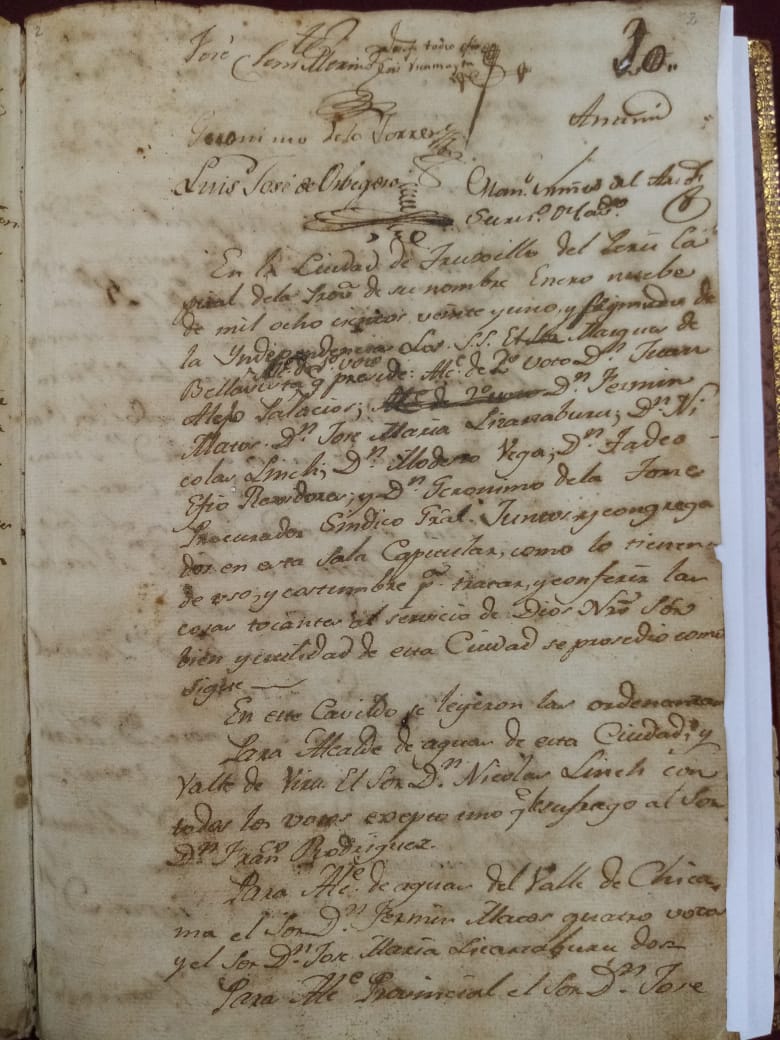 2
2
20..
José
Jeronimo dela Torre
Luis José de Orbegoso
En la Ciudad de Truxillo del Perú Ca
pital dela Prov.ª de su nombre Enero nuebe
de mil ocho cientos veinte y uno, y primero de
la Yndependencia Los S.S. Marques de
Alc.e de 1.º voto
Bellavista q.e preside: Alc.e de 2.º voto D.n Juan
Alejo Palacios; D.n Fermin
Matos. D.n José Maria Lizarzaburu; D.n Ni
colas Linch; D.n Modesto Vega; D.n Tadeo
Efio Rexidores; y D.n Jeronimo dela Torre
Procurador Sindico Gral. Juntos y congrega
dos en esta Sala Capitular, como lo tienen
de uso, y costumbre p.ª tratar, y conferir las
cosas tocantes al servicio de Dios Nrõ Sõr
bien y utilidad de esta Ciudad se prosedio como
sigue
En este Cavildo se leyeron las ordenanzas
Para Alcalde de aguas de esta Ciudad, y
Valle de Viru. El Sor. D.n Nicolas Linch con
todos los votos exepto uno q.e sufrago al Sor.
D.n Fran.co Rodriguez.
Para Alc.e de aguas del Valle de Chica
ma el Sor. D.n Fermin Matos quatro votos
y el Sor. D.n Jose Maria Lizarzaburu dos
Para Alc.e Provincial el Sor. D.n Jose